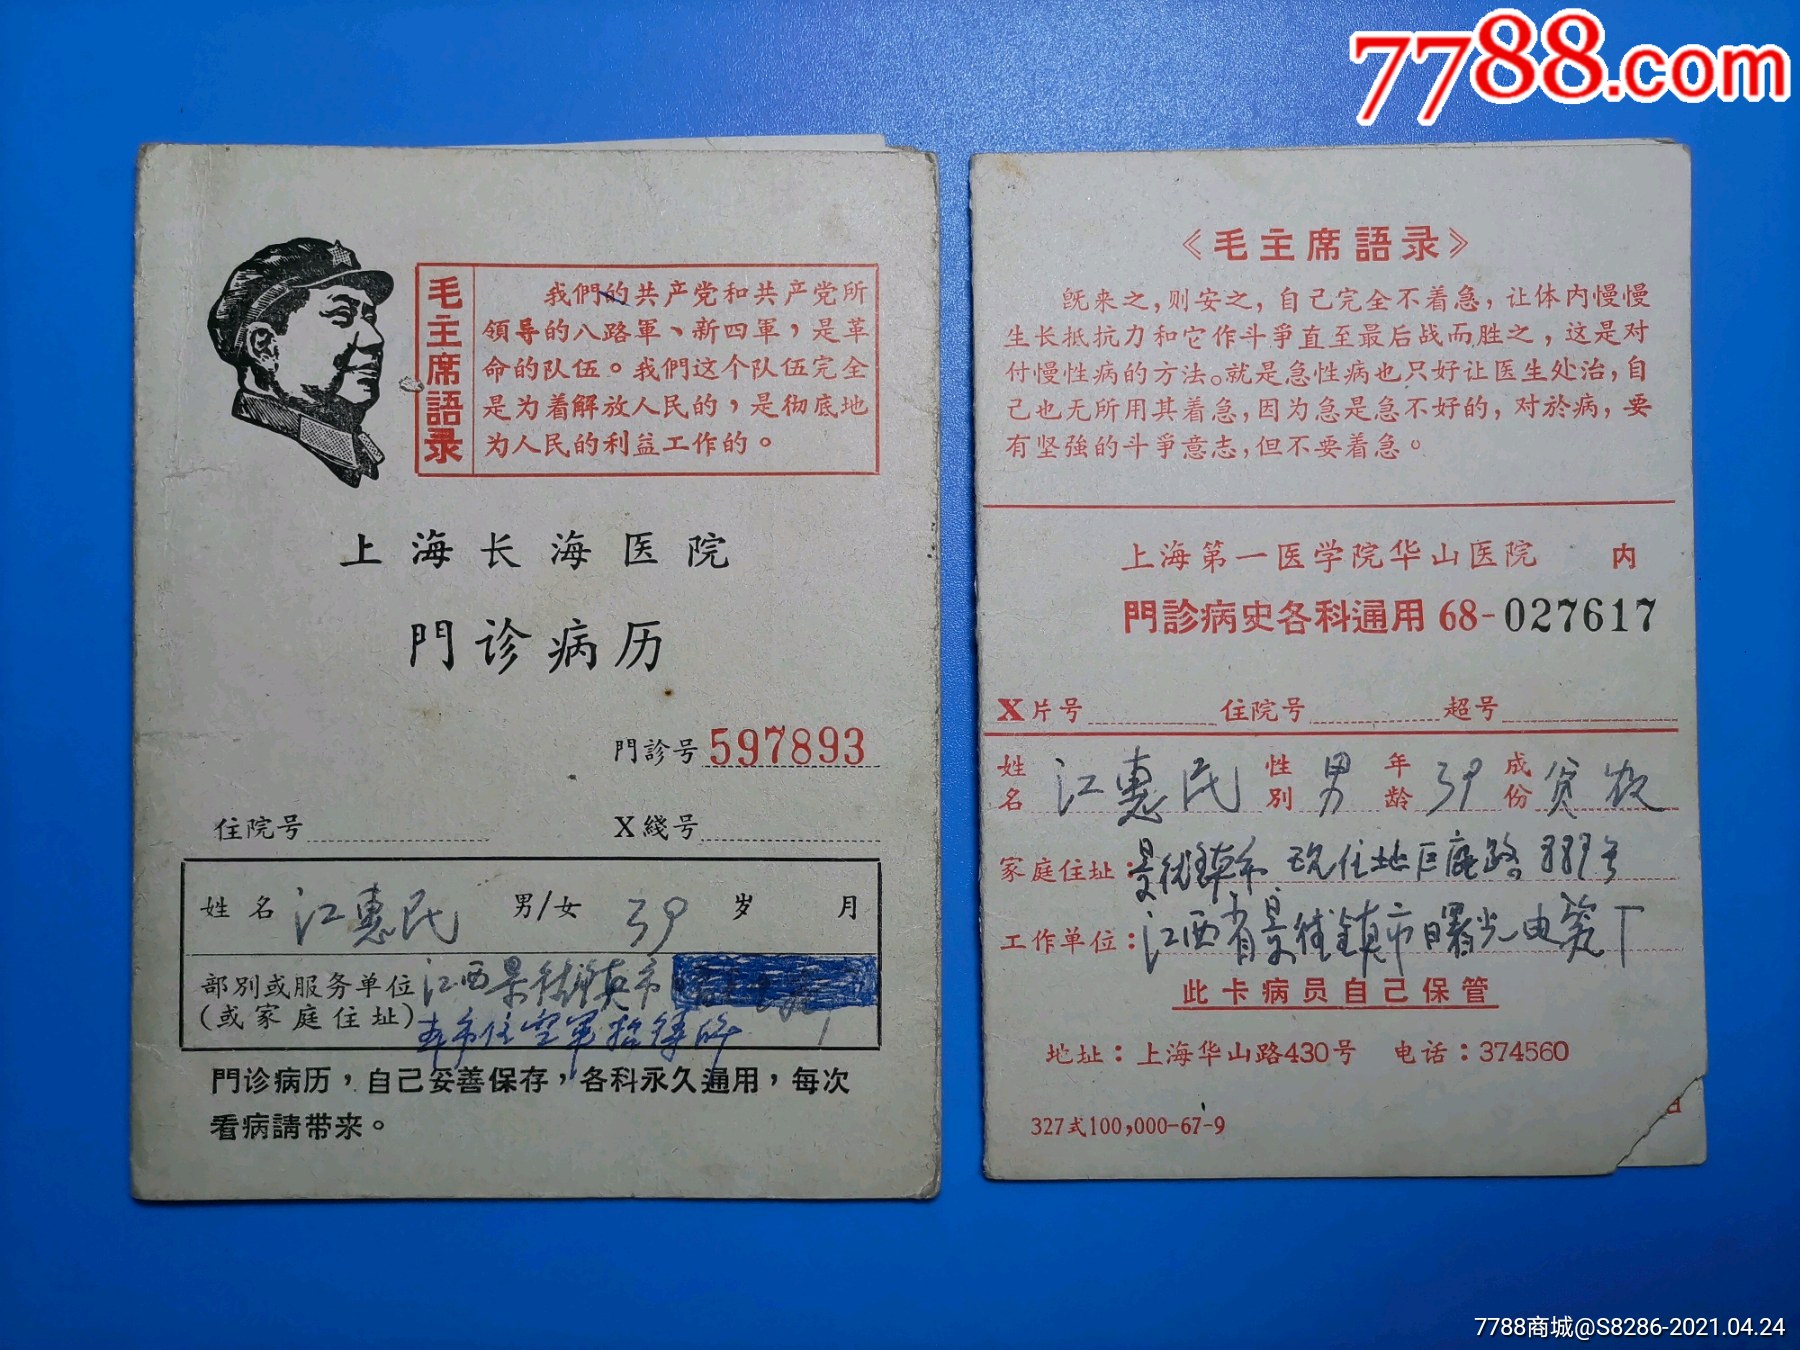 7788.com
毛主席語录
我們的共产党和共产党所
領导的八路軍、新四軍，是革
命的队伍。我們这个队伍完全
是为着解放人民的，是彻底地
为人民的利益工作的。
上海长海医院
門诊病历
門診号 597893
住院号 X綫号
姓名 江惠民 男/女 39 岁 月
部別或服务单位 江西景德镇市
(或家庭住址) 本市住空軍招待所
門诊病历，自己妥善保存，各科永久通用，每次
看病請带来。
《毛主席語录》
旣来之，则安之，自己完全不着急，让体內慢慢
生长抵抗力和它作斗爭直至最后战而胜之，这是对
付慢性病的方法。就是急性病也只好让医生处治，自
己也无所用其着急，因为急是急不好的，对於病，要
有坚強的斗爭意志，但不要着急。
上海第一医学院华山医院 内
門診病史各科通用 68-027617
X片号 住院号 超号
姓名 江惠民 性別 男 年龄 39 成份 贫农
家庭住址：景德镇市 现住地巨鹿路889号
工作单位：江西省景德镇市曙光电瓷厂
此卡病员自己保管
地址：上海华山路430号 电话：374560
327式100,000-67-9
7788商城@S8286-2021.04.24